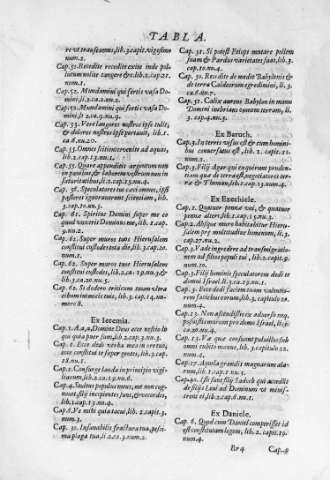 TABLA.
re ut transeamus, lib. 3. capit. vigesimo
num. 2.
Cap. 52. Recedite recedite exite inde pol-
lutum nolite tangere &c. lib. 2. cap. 21.
num. 1.
Cap. 52. Mundamini qui fertis vasa Do-
mini, li. 2. ca. 2. nu. 2.
Cap. 52. Mundamini qui fertis vasa Do-
mini, li. 2. ca. 9. nu. 4.
Cap. 53. Vere languores nostros ipse tulit,
& dolores nostros ipse portavit, lib. 1.
ca. 8. nu. 20.
Cap. 55. Omnes sitientes venite ad aquas,
lib. 2. cap. 13. nu. 1.
Cap. 55. Quare appenditis argentum non
in panibus, & laborem vestrum non in
saturitate
Cap. 56. Speculatores tui caeci omnes, ipsi
pastores ignoraverunt scientiam, lib.
3. cap. 10. nu. 3.
Cap. 61. Spiritus Domini super me eo
quod unxerit Dominus me, lib. 1. cap.
9. nu. 2.
Cap. 62. Super muros tuos Hierusalem
constitui custodes tota die, lib. 3. cap. 20.
num. 1.
Cap. 62. Super muros tuos Hierusalem
constitui custodes, lib. 2. ca. 19. nu. 3 &
lib. 3. ca. 20. nu. 5.
Cap. 65. Si dederis criticum tuum ultra
cibum inimicis tuis, lib. 3. cap. 14. nu-
mero 8.
Ex Ieremia.
Cap. 1. A, a, a, Domine Deus ecce nescio lo
qui quia puer sum, lib. 2. cap. 3. nu. 3.
Cap. 1. Ecce dedi verba mea in ore tuo,
ecce constitui te super gentes, lib. 3. cap.
18. nu. 1.
Cap. 2. Consurge lauda in principio vigi-
liarum, lib. 2. ca. 19. nu. 6.
Cap. 4. Stultus populus meus, me non cog-
novit, filij insipientes sunt, & vecordes,
lib. 1. cap. 13. nu. 4.
Cap. 6. Ve mihi quia tacui, lib. 2. capit. 3.
num. 3.
Cap. 30. Insanabilis fractura tua, pessi-
ma plaga tua, li. 2. ca. 3. num. 2.
Cap. 31. Si potest Etiops mutare pellem
suam & Pardus varietates suas, lib. 3.
cap. 10. nu. 4.
Cap. 50. Recedite de medio Babylonis &
de terra Caldeorum egredimini, li. 3.
ca. 6. nu. 7.
Cap. 51. Calix aureus Babylon in manu
Domini inebrians omnem terram, li.
3. cap. 4. nu. 3.
Ex Baruch.
Cap. 3. In terris visus est & cum homini-
bus conversatus est, lib. 2. capit. 21.
num. 1.
Cap. 3. Filij Agar qui exquirunt pruden-
tiam quae de terra est, negotiatores ter-
rae & Theman, lib. 1. cap. 13. num. 4.
Ex Ezechiele.
Cap. 1. Quatuor facies uni, & quatuor
pennae alteri, lib. 1. cap. 13. nu. 3.
Cap. 2. Absque muro habitabitur Hieru-
salem prae multitudine hominum, li. 3.
cap. 27. nu. 2.
Cap. 3. Vade ingredere ad transmigratio-
nem ad filios populi tui, lib. 2. capit. 9.
num. 10.
Cap. 3. Filij hominis speculatorem dedi te
domui Israel lib. 3. ca. 19. nu. 1.
Cap. 3. Ecce dedi faciem tuam valentio-
rem faciebus eorum, lib. 3. capitulo 20.
num. 4.
Cap. 13. Non ascendistis ex adverso neq
opposuistis murum pro domo Israel, lib. 3.
ca. 20. nu. 4.
Cap. 13. Vae quae consuunt pulvillos sub
omni cubito manus, lib. 3. capitulo 22.
num. 1.
Cap. 17. Aquila grandis magnarum ala-
rum, lib. 1. cap. 11. nu. 5.
Cap. 40. Isti sunt filij Sadoch qui accedunt
de filijs Levi ad Dominum ut minis-
trent ei, lib. 2. cap. 9. num. 6.
Ex Daniele.
Cap. 6. Quod cum Daniel comperisset id
est constitutam legem, lib. 2. capit. 19.
num. 4.
Br 4 Cap. 8